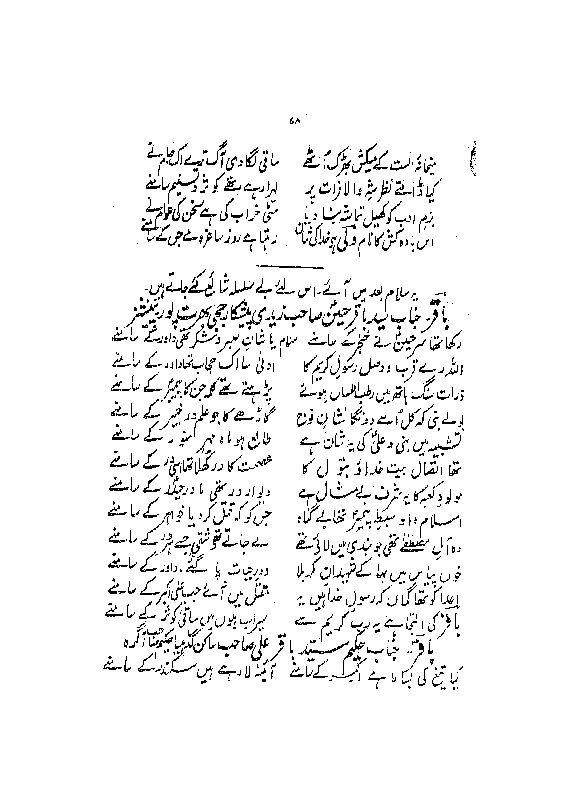 ۶۸
میخانۂ الست کے میکش بھڑک اُٹھے ساقی لگا دی آگ ترے اک جام نے
کیا ڈالئے نظر شہ والا فرات پر لہرا رہے تھے کوثر و تسنیم سامنے
بزم ادب کو کھیل تماشا بنا دیا مٹی خراب کی ہے سخن کی عوام نے
اس بادہ کش کا نام ولی ہے خدا کی شان رہتا ہے روز ساغرِ مے جس کے سامنے
یہ سلام بعد میں آئے۔ اس لئے بے سلسلہ شائع کئے جاتے ہیں۔
باقر جناب سید باقر حسین صاحب زیدی پیشکار ججی بھرت پور
رکھا تھا سر حسین نے خنجر کے سامنے
اللہ رے قرب و وصل رسولِ کریم کا ادنیٰ سا اک حجاب تھا داور کے سامنے
ذرات سنگ ہاتھ میں رطب اللساں ہوئے پڑھتے تھے کلمہ جن کا پیمبر کے سامنے
بولے نبی کہ کل اُسے دونگا نشانِ فوج گاڑھے گا جو علم در خیبر کے سامنے
تشبیہ میں نبی و علی کی یہ شان ہے طالع ہو ماہ مہر منور کے سامنے
تھا اتصال بیت خدا و بتول کا عصمت کا در کھلا تھا اسی در کے سامنے
مولود کعبہ کا یہ شرف بے مثال ہے دیوار در بنی مادرِ حیدر کے سامنے
اسلام اور سبطِ پیمبر تھا بے گناہ جس کو کہ قتل کر دیا خواہر کے سامنے
وہ آلِ مصطفےٰ تھی جو بندی میں لائے تھے لے جاتے تھے شقی جسے در در کے سامنے
خوں پیاس میں بہا کے شہیدانِ کربلا درجات پا گئے داور کے سامنے
اعدا کو تھا گماں کہ رسولِ خدا ہیں یہ مقتل میں آئے جب علی اکبر کے سامنے
باقر کی التجا ہے یہ رب کریم سے سیراب ہوں میں ساقی کوثر کے سامنے
باقر جناب حکیم سید باقر علی صاحب ساکن آگرہ
کیا تیغ کی بساط ہے اکبر کے سامنے آئینہ لا رہے ہیں سکندر کے سامنے